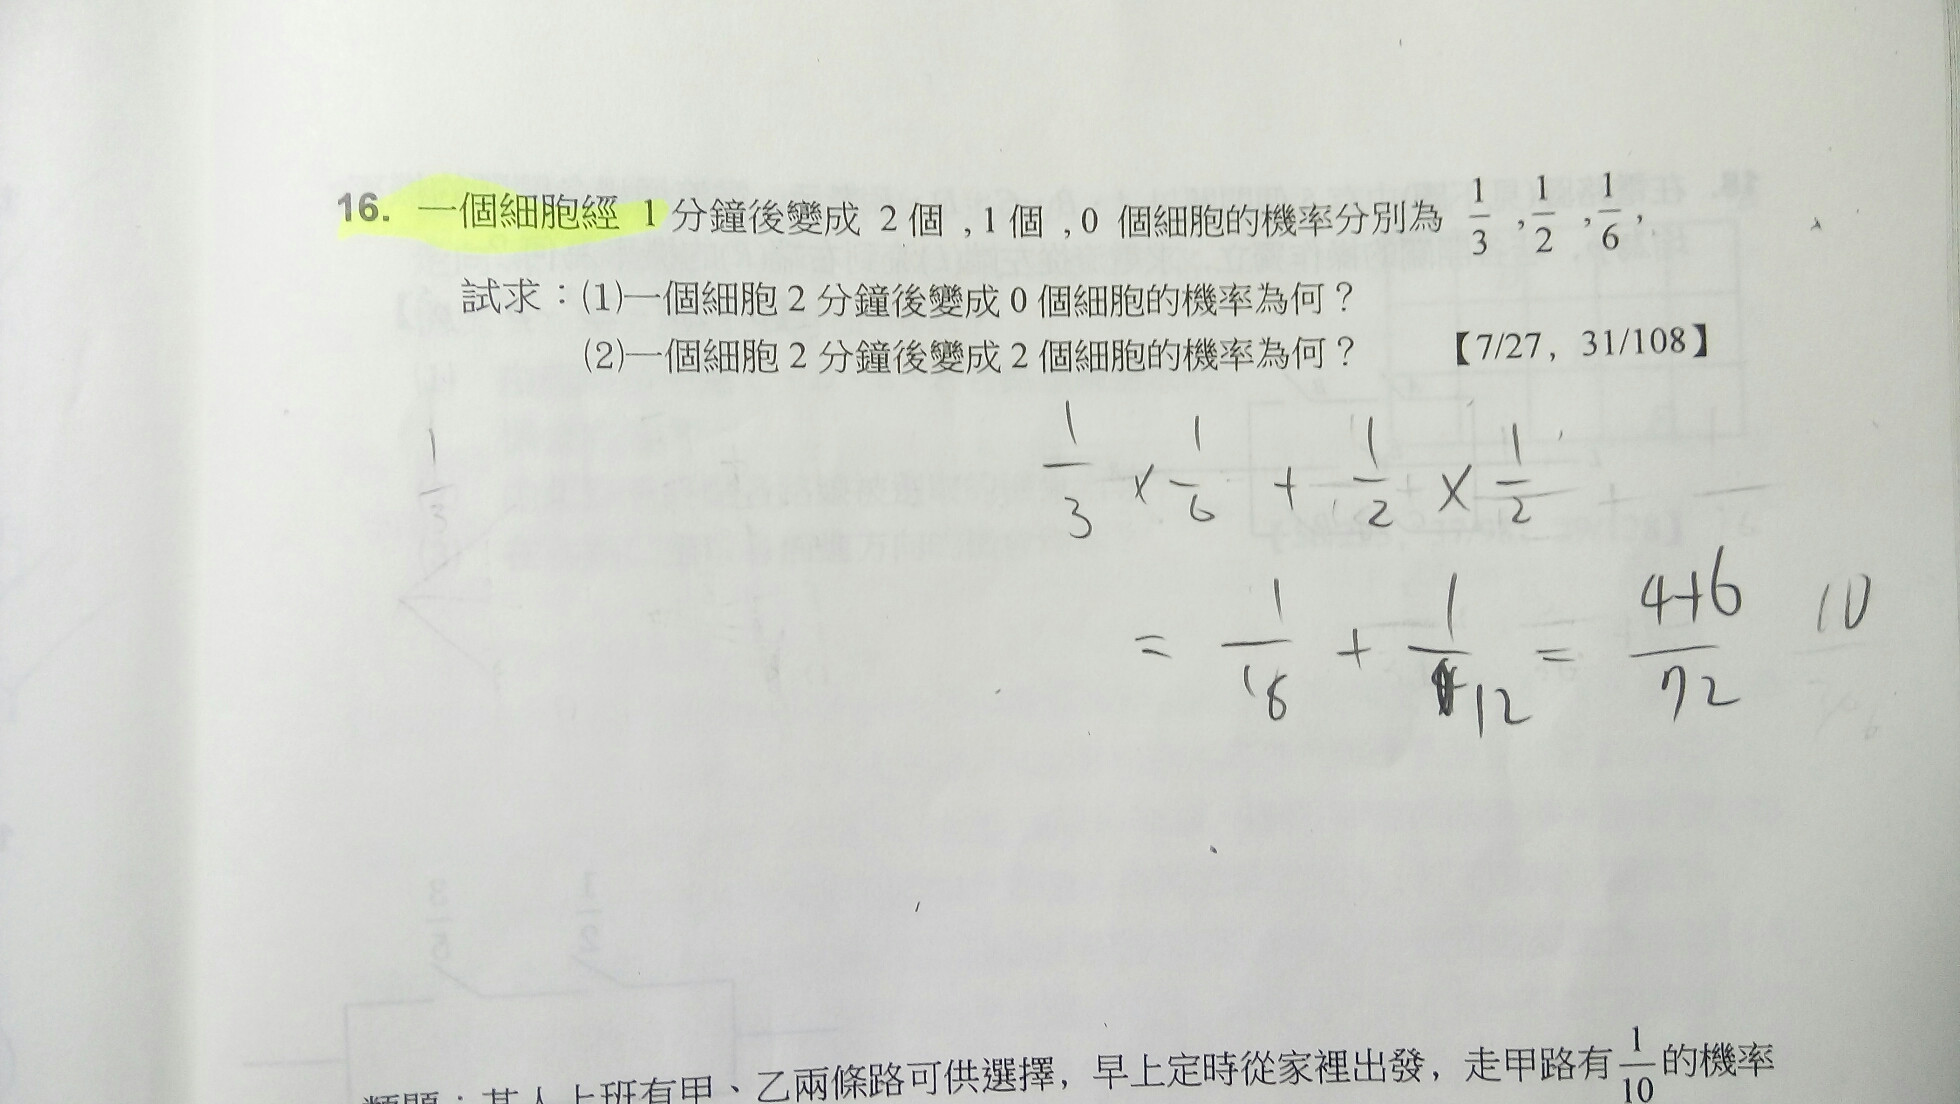 16. 一個細胞經 1 分鐘後變成 2 個 , 1 個 , 0 個細胞的機率分別為 1/3 , 1/2 , 1/6 ,
試求：(1)一個細胞 2 分鐘後變成 0 個細胞的機率為何？
(2)一個細胞 2 分鐘後變成 2 個細胞的機率為何？ 【7/27，31/108】
1/3 × 1/6 + 1/2 × 1/2
1/3
= 1/18 + 1/12 = 4+6/72 10
類題：某人上班有甲、乙兩條路可供選擇，早上定時從家裡出發，走甲路有 1/10 的機率